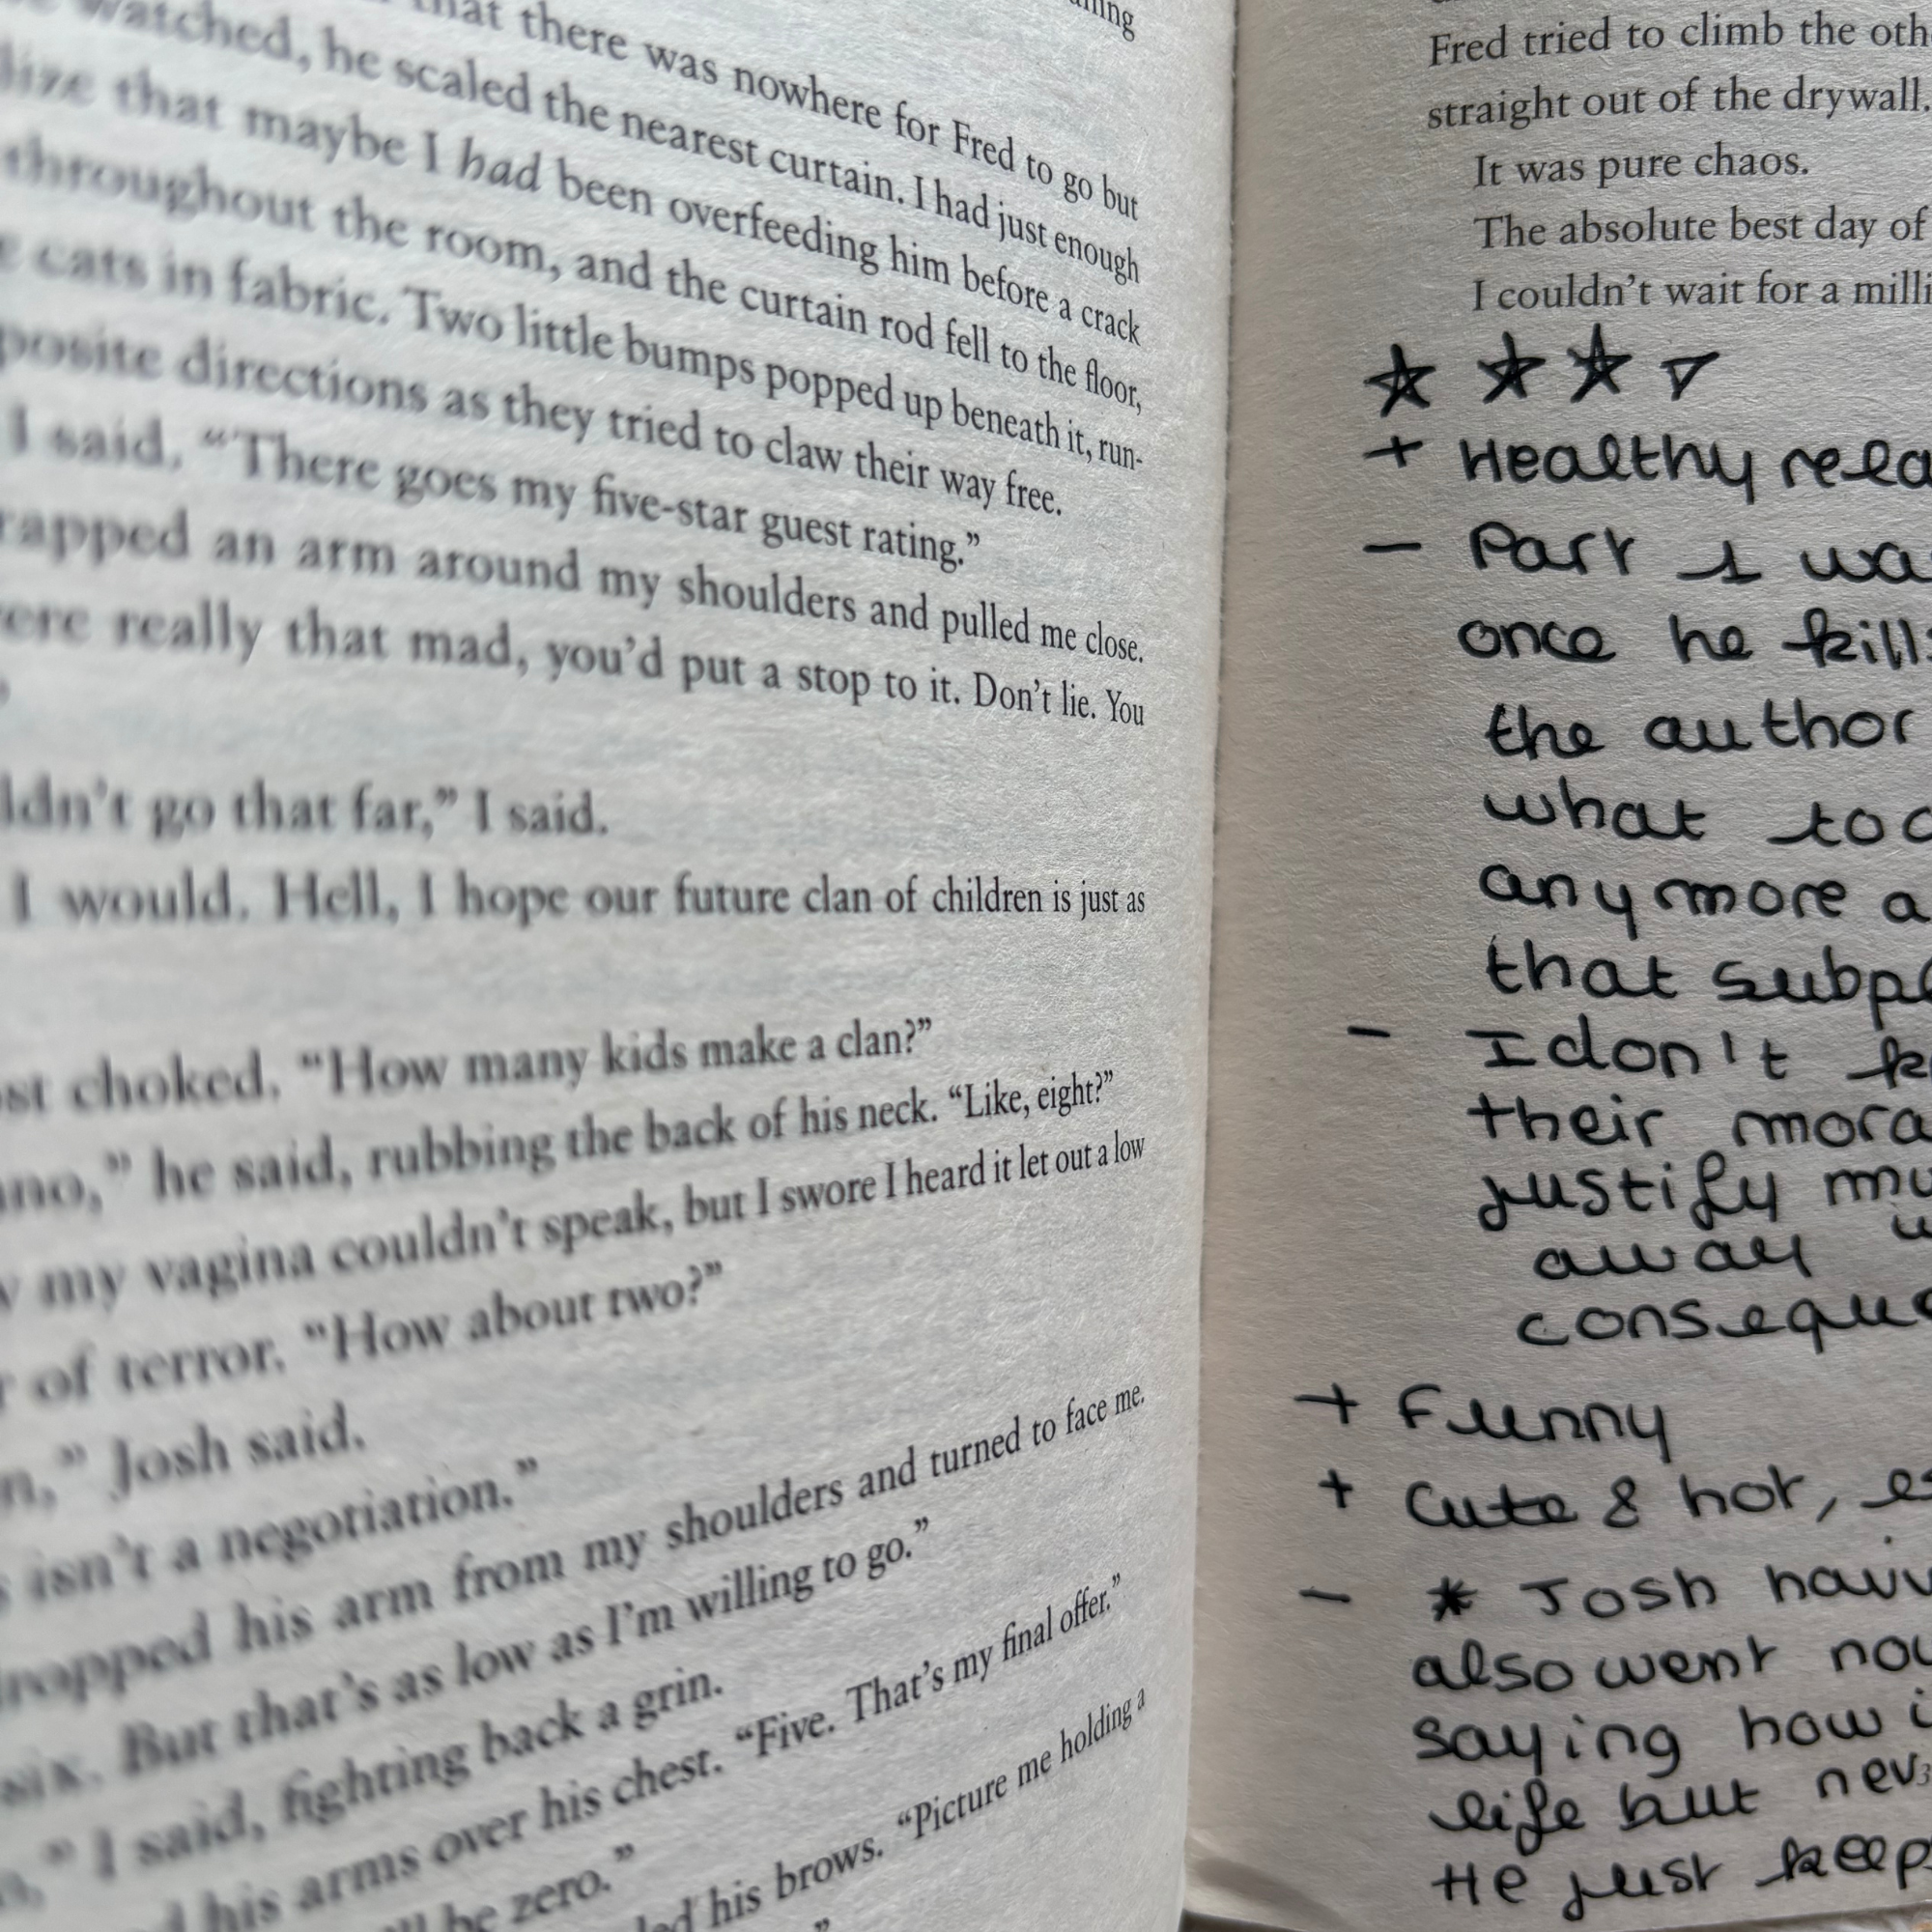 that there was nowhere for Fred to go but
watched, he scaled the nearest curtain. I had just enough
lize that maybe I had been overfeeding him before a crack
throughout the room, and the curtain rod fell to the floor,
cats in fabric. Two little bumps popped up beneath it, run-
posite directions as they tried to claw their way free.
I said. “There goes my five-star guest rating.”
rapped an arm around my shoulders and pulled me close.
ere really that mad, you’d put a stop to it. Don’t lie. You
ldn’t go that far,” I said.
I would. Hell, I hope our future clan of children is just as
st choked. “How many kids make a clan?”
no,” he said, rubbing the back of his neck. “Like, eight?”
my vagina couldn’t speak, but I swore I heard it let out a low
of terror. “How about two?”
n,” Josh said.
isn’t a negotiation.”
ropped his arm from my shoulders and turned to face me.
six. But that’s as low as I’m willing to go.”
I said, fighting back a grin.
his arms over his chest. “Five. That’s my final offer.”
be zero.”
ed his brows. “Picture me holding a
Fred tried to climb the oth
straight out of the drywall.
It was pure chaos.
The absolute best day of
I couldn’t wait for a milli
+ Healthy rela
- Part I wa
once he kill
the author
what to d
anymore a
that subpl
- I don't k
their mora
justify mu
away
conseque
+ Funny
+ Cute & hot, es
- * Josh havi
also went no
saying how i
life but nev
He just keep